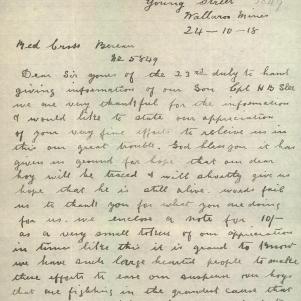 Young Street 5849
Wallaroo Mines
24-10-18
Red Cross Bureau
No 5849
Dear Sir yours of the 23rd duly to hand
giving information of our Son Cpl H B Slee
we are very thankful for the information
I would like to state our appreciation
of your very fine efforts to relieve us in
this our great trouble. God bless you it has
given us ground for hope that our dear
boy will be traced & will shortly give us
hope that he is still alive. words fail
us to thank you for what you are doing
for us. we enclose a note for 10/-
as a very small token of our appreciation
in times like this it is grand to know
we have such large hearted people to make
these efforts to ease our suspense our boys
that are fighting in the grandest cause that